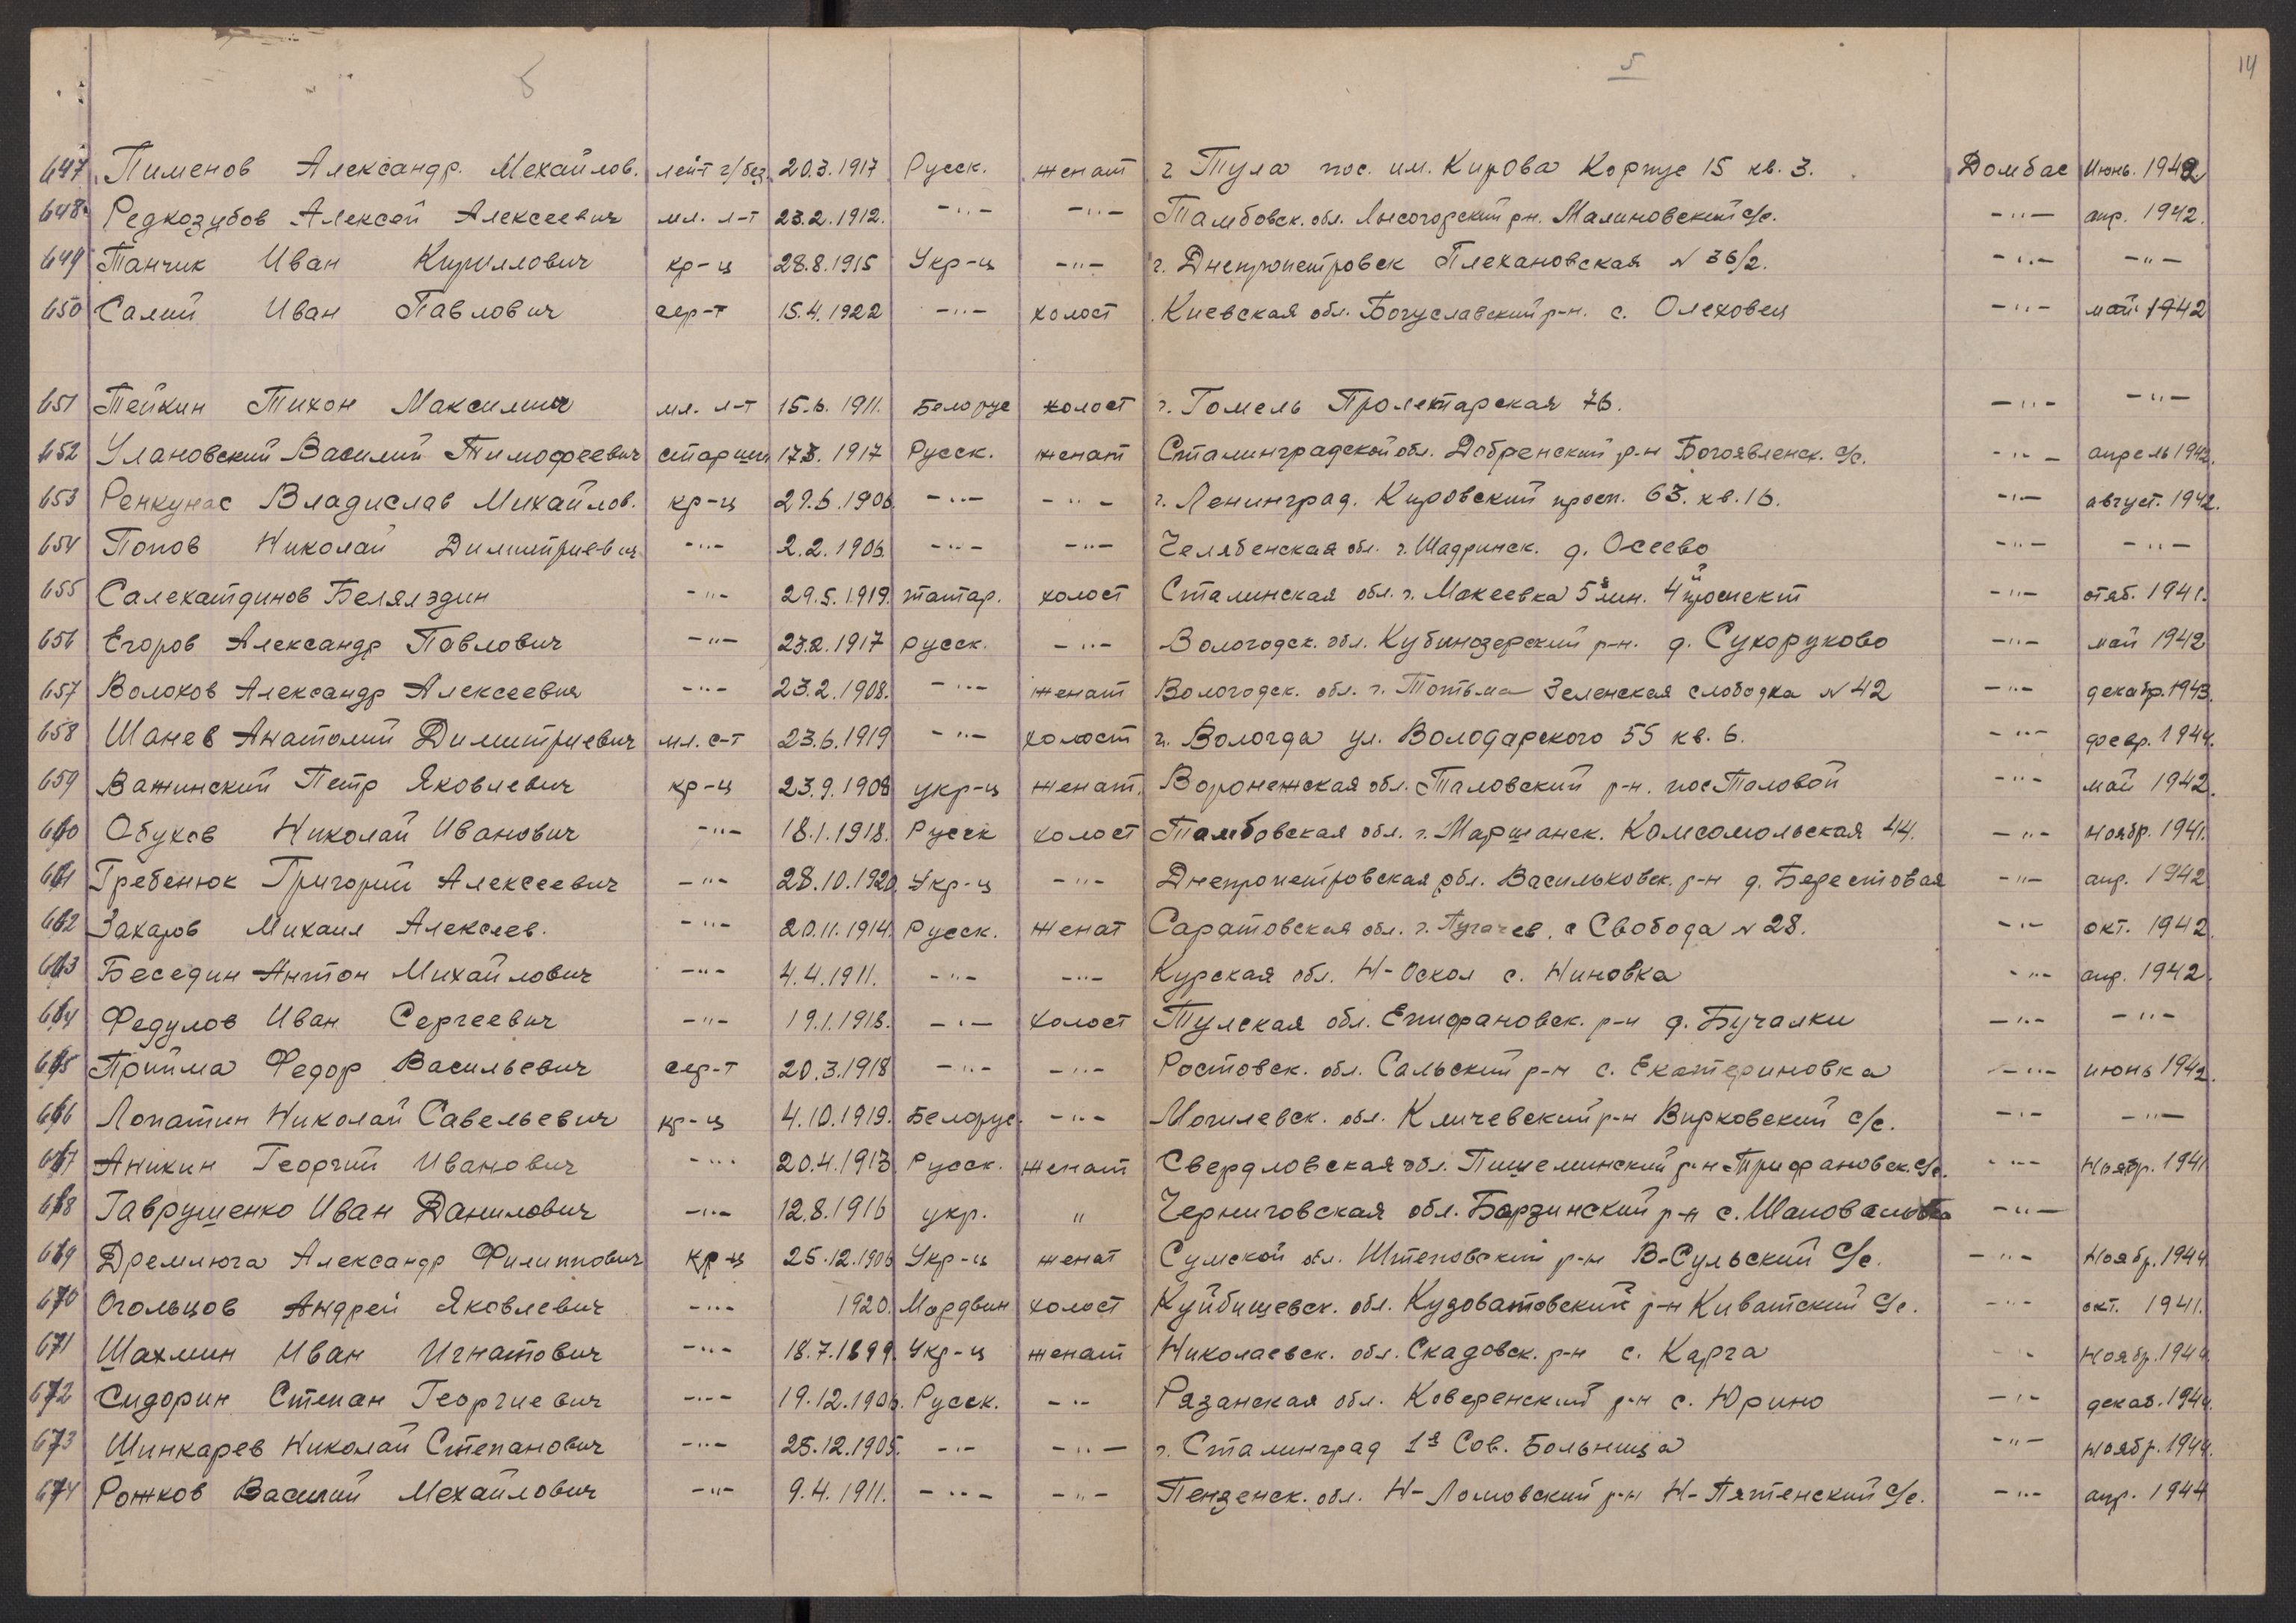 5 14
647 Пименов Александр Мехайлов. лей-т г/без 20.3.1917 Русск. женат г. Тула пос. им. Кирова Корпус 15 кв. 3. Домбас Июнь. 1942
648 Редкозубов Алексей Алексеевич мл. л-т 23.2.1912. -"- -"- Тамбовск. обл. Лысогорский рн. Малиновский с/с. -"- апр. 1942.
649 Танчик Иван Кириллович кр-ц 28.8.1915 Укр-ц -"- г. Днепропетровск Плехановская N 36/2. -"- -"-
650 Салий Иван Павлович сер-т 15.4.1922 -"- холост Киевская обл. Богуславский р-н. с. Олеховец -"- май 1942
651 Тейкин Тихон Максимич мл. л-т 15.6.1911. Белорус холост г. Гомель Пролетарская 76. -"- -"-
652 Улановский Василий Тимофеевич старшин 17.3.1917 Русск. женат Сталинградской обл. Добренский р-н Богоявленск. с/с. -"- апрель 1942.
653 Ренкунас Владислав Михайлов. кр-ц 27.6.1906. -"- -"- г. Ленинград. Кировский просп. 63. кв. 16. -"- август. 1942.
654 Попов Николай Димитриевич -"- 2.2.1906. -"- -"- Челябенская обл. г. Шадринск. д. Осеево -"- -"-
655 Салехатдинов Белялэдин -"- 29.5.1919. татар. холост Сталинская обл. г. Макеевка 5я лин. 4й проспект -"- отяб. 1941.
656 Егоров Александр Павлович -"- 23.2.1917 Русск. -"- Вологодск. обл. Кубинозерский р-н. д. Сухоруково -"- май 1942
657 Волохов Александр Алексеевич -"- 23.2.1908. -"- женат Вологодск. обл. г. Тотьма Зеленская слободка N 42 -"- декабр. 1943.
658 Шанев Анатолий Димитриевич мл. с-т 23.6.1919 -"- холост г. Вологда ул. Володарского 55 кв. 6. -"- февр. 1944.
659 Важинский Петр Яковлевич кр-ц 23.9.1908 укр-ц женат. Воронежская обл. Таловский р-н. пос Таловой -"- май 1942.
660 Обухов Николай Иванович -"- 18.1.1918. Русск холост Тамбовская обл. г. Маршанск. Комсомольская 44. -"- ноябр. 1941.
661 Гребенюк Григорий Алексеевич -"- 28.10.1920. Укр-ц -"- Днепропетровская обл. Васильковск. р-н д. Берестовая -"- апр. 1942
662 Захаров Михаил Алексеев. -"- 20.11.1914. Русск. женат Саратовская обл. г. Пугачев. с Свобода N 28. -"- окт. 1942
663 Беседин Антон Михайлович -"- 4.4.1911. -"- -"- Курская обл. Н-Оскол с. Ниновка -"- апр. 1942.
664 Федулов Иван Сергеевич -"- 19.1.1918. -"- холост Тулская обл. Епифановск. р-н д. Бучалки -"- -"-
665 Прийма Федор Васильевич сер-т 20.3.1918 -"- -"- Ростовск. обл. Сальский р-н с. Екатериновка -"- июнь 1942.
666 Лопатин Николай Савельевич кр-ц 4.10.1919. Белорус. -"- Могилевск. обл. Кличевский р-н Вирковский с/с. -"- -"-
667 Аникин Георгий Иванович -"- 20.4.1913 Русск. женат Свердловская обл. Пишеминский р-н Трифановск. с/с. -"- Ноябр. 1941
668 Гаврушенко Иван Данилович -"- 12.8.1916 укр. " Черниговская обл. Борзинский р-н с. Шаповаловка -"-
669 Дремлюга Александр Филиппович кр-ц 25.12.1906 Укр-ц женат Сумской обл. Штеповский р-н В-Сульский с/с. -"- Ноябр. 1944
670 Огольцов Андрей Яковлевич -"- 1920. Мордвин холост Куйбишевск. обл. Кузоватовский р-н Киватский с/с. -"- окт. 1941.
671 Шахмин Иван Игнатович -"- 18.7.1899. Укр-ц женат Николаевск. обл. Скадовск. р-н с. Карга -"- Ноябр. 1944
672 Сидорин Степан Георгиевич -"- 19.12.1906. Русск. -"- Рязанская обл. Коверенский р-н с. Юрино -"- декаб. 1944.
673 Шинкарев Николай Степанович -"- 25.12.1905. -"- -"- г. Сталинград 1я Сов. Больница -"- ноябр. 1944.
674 Рожков Василий Мехайлович -"- 9.4.1911. -"- -"- Пензенск. обл. Н-Ломовский р-н Н-Пятенский с/с. -"- апр. 1944